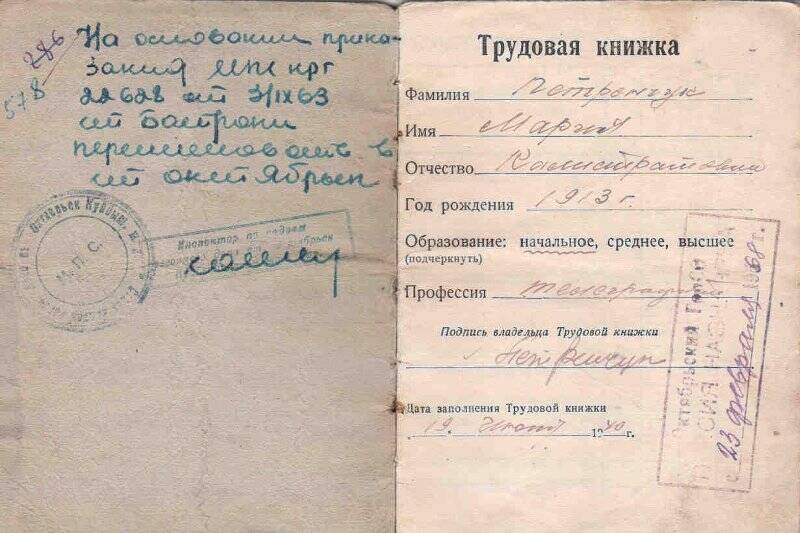 286
578
На основании прика-
зания МПС
22628 от 3/IX 63
ст Батраки
переименовать в
ст октябрьск
М.П.С.
Инспектор по кадрам
Трудовая книжка
Фамилия Петренчук
Имя Мария
Отчество Калистратовна
Год рождения 1913 г.
Образование: начальное, среднее, высшее
(подчеркнуть)
Профессия
Подпись владельца Трудовой книжки
Петренчук
Дата заполнения Трудовой книжки
19. 1940г.
Октябрьский
ПЕНСИЯ НАЗНАЧЕНА
с 23 февраля 1968 г.